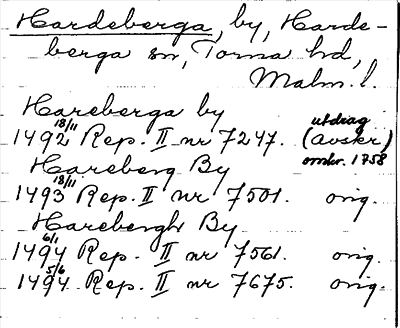 Hardeberga, by, Harde-
berga sn, Torna hd,
Malm. l.
Hareberga by
1492 18/11 Rep. II nr 7247. (avskr) utdrag
omkr. 1758
Hareberg By
1493 18/11 Rep. II nr 7501. orig.
Harebergh By
1494 6/1 Rep. II nr 7561. orig.
1494 5/6 Rep. II nr 7675. orig.